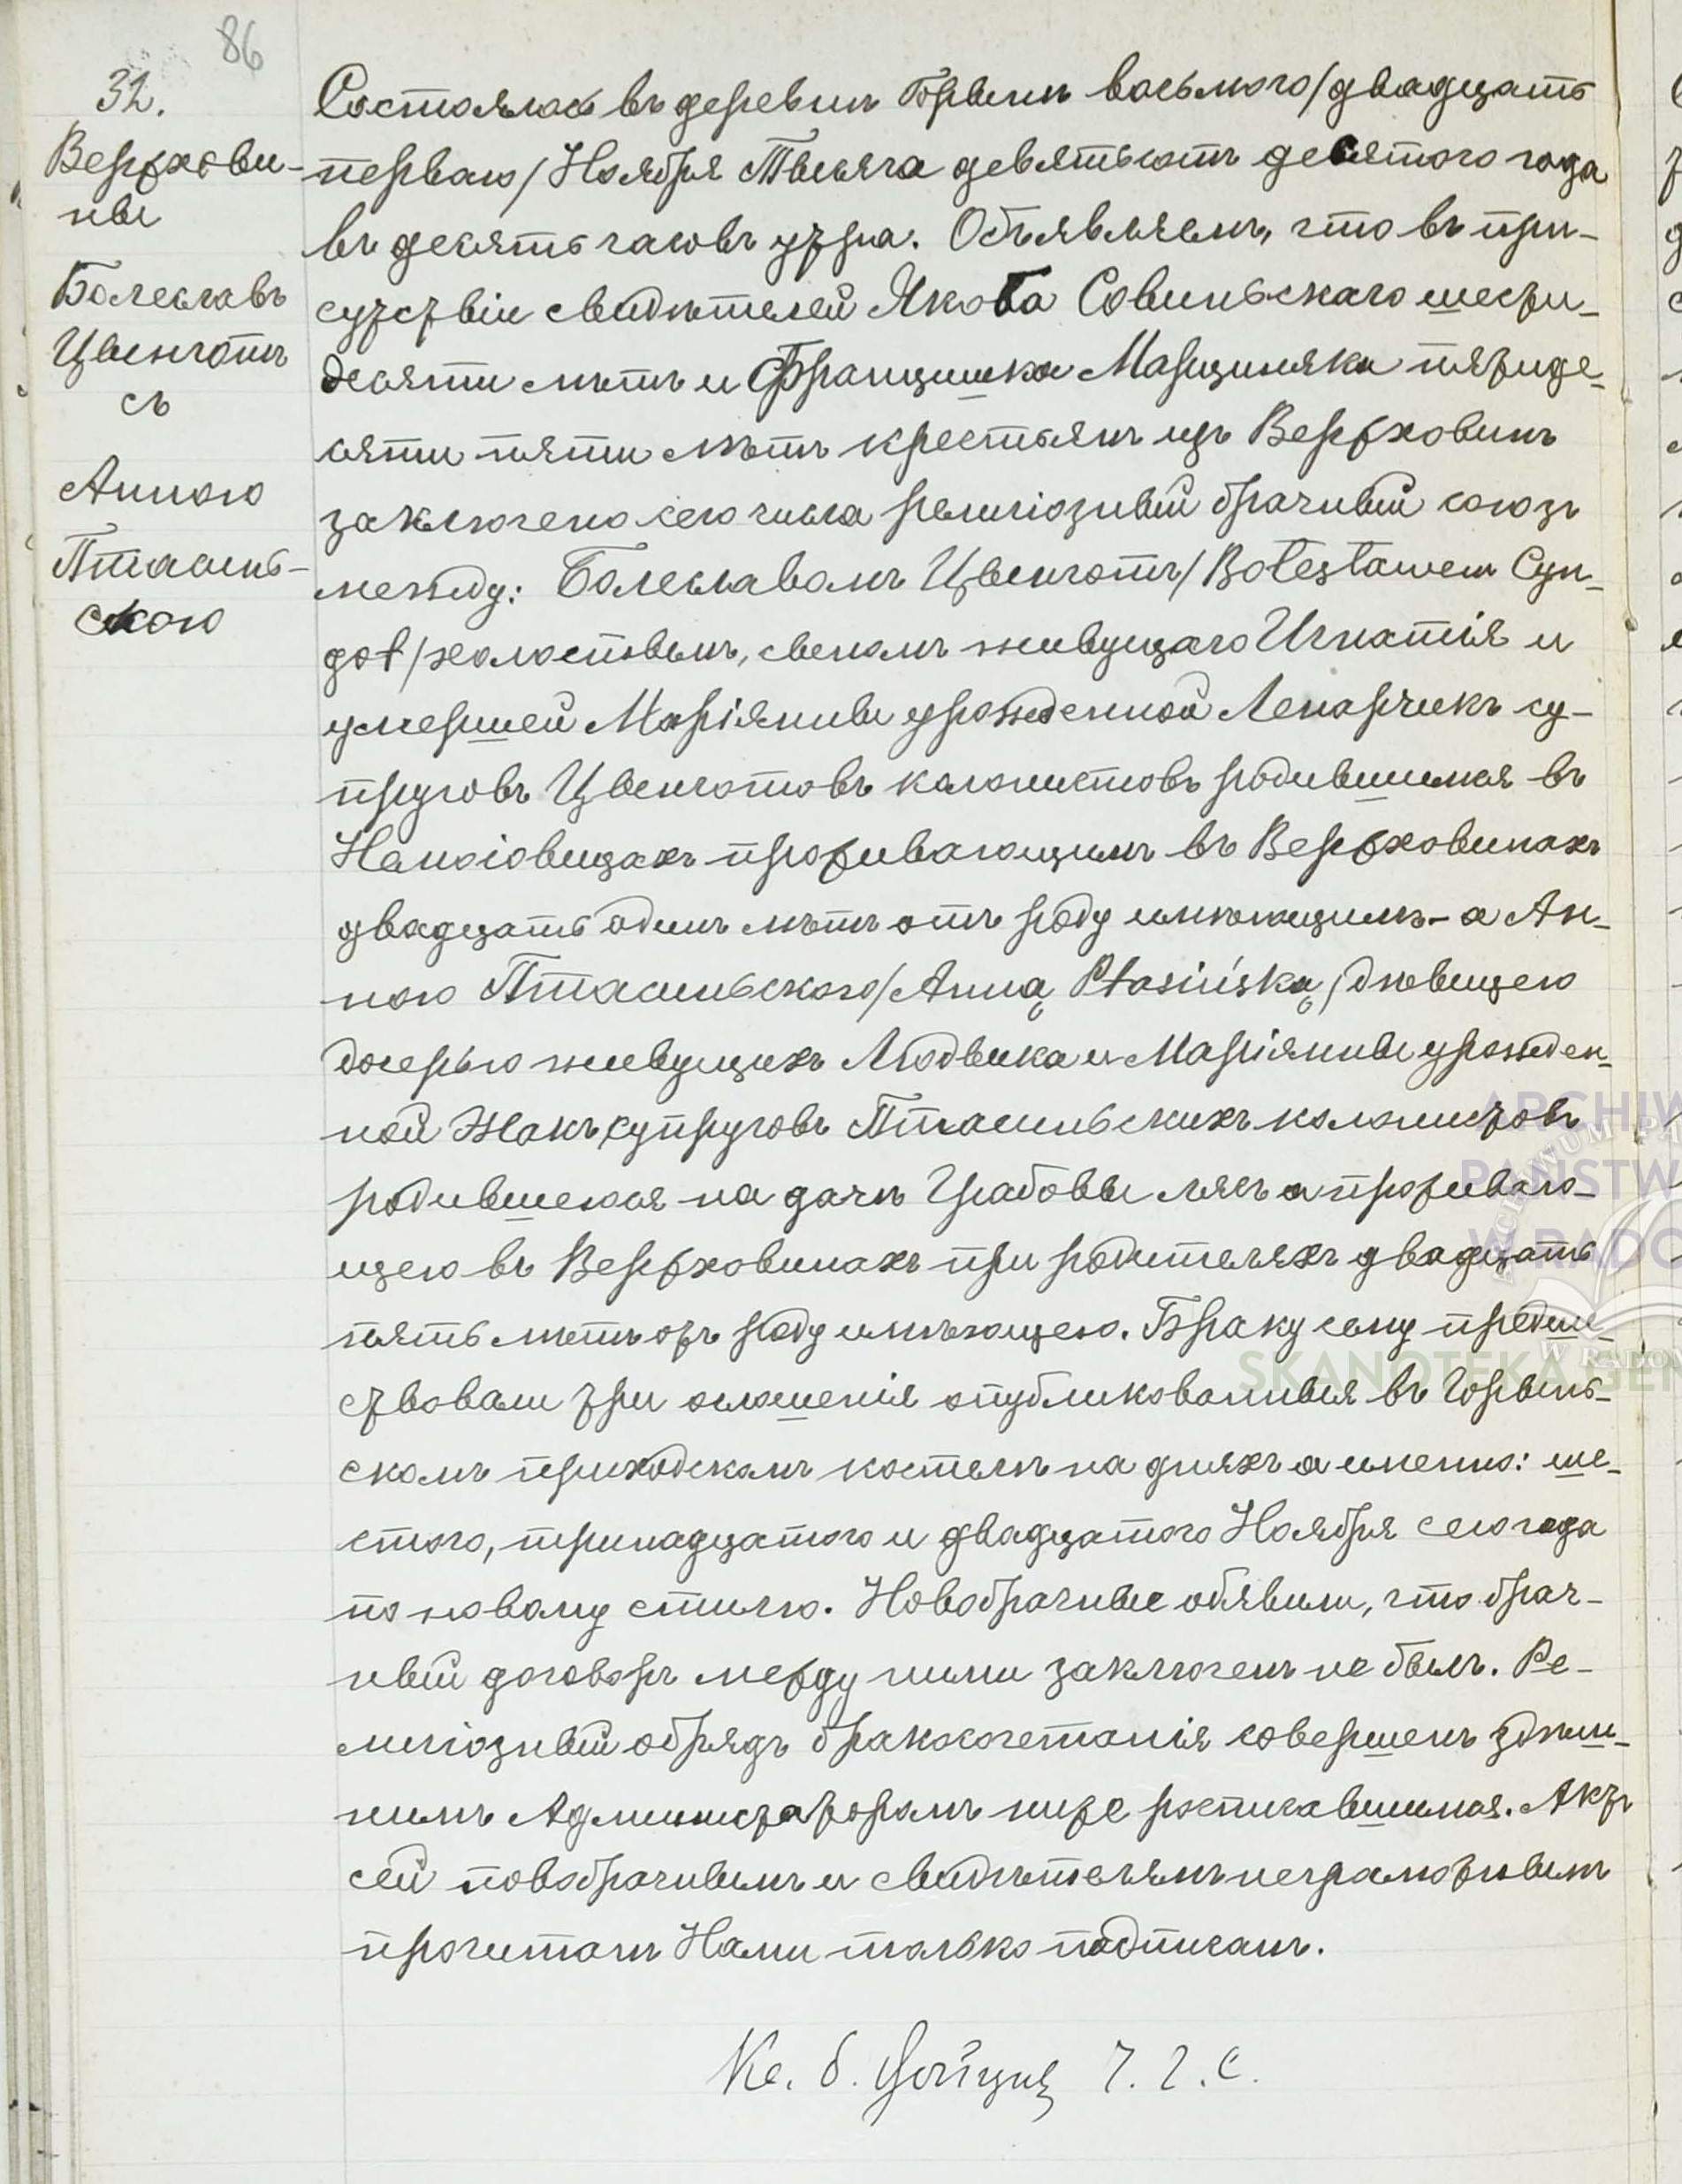 86
32.
Вержхови-
ны
Болеславъ
Цвенготъ
съ
Анною
Птасинь-
скою
Состоялось въ деревни Горынь восьмого/двадцать
перваго/Ноября Тысяча девятьсотъ десятого года
въ десять часовъ утра. Объявляемъ, что въ при-
сутствіи свидѣтелей Якова Совиньскаго шести-
десяти лѣтъ и Францишка Марциняка пятиде-
сяти пяти лѣтъ крестьянъ изъ Вержховинъ
заключено сего числа религіозный брачный союзъ
между: Болеславомъ Цвенготъ/Bolesławem Cyn-
got/холостымъ, сыномъ живущаго Игнатія и
умершей Маріянны урожденной Ленарчикъ су-
пруговъ Цвенготовъ колонистовъ родившимся въ
проживающимъ въ Вержховинахъ
двадцать одинъ лѣтъ отъ роду имѣющимъ - а Ан-
ною Птасиньского/Anną Ptasińską/дѣвицею
дочерью живущихъ Людвика и Маріянны урожден-
ной Жакъ, супруговъ Птасиньскихъ колонистовъ
родившеюся на дачѣ Грабовы лясъ а проживаю-
щею въ Вержховинахъ при родителяхъ двадцать
пять лѣтъ отъ роду имѣющею. Браку сему предше-
ствовали три оглашенія опубликованныя въ Горынь-
скомъ приходскомъ костелѣ на дняхъ а именно: ше-
стого, тринадцатого и двадцатого Ноября сего года
по новому стилю. Новобрачные обявили, что брач-
ный договоръ между ними заключенъ не былъ. Ре-
лигіозный обрядъ бракосочетанія совершенъ здѣш-
нимъ Администраторомъ ниже росписавшимся. Актъ
сей новобрачнымъ и свидѣтелямъ неграмотнымъ
прочитанъ Нами только подписанъ.
Кс. б.
ARCHIWUM
PAŃSTW
W RADO
SKANOTEKA GEN